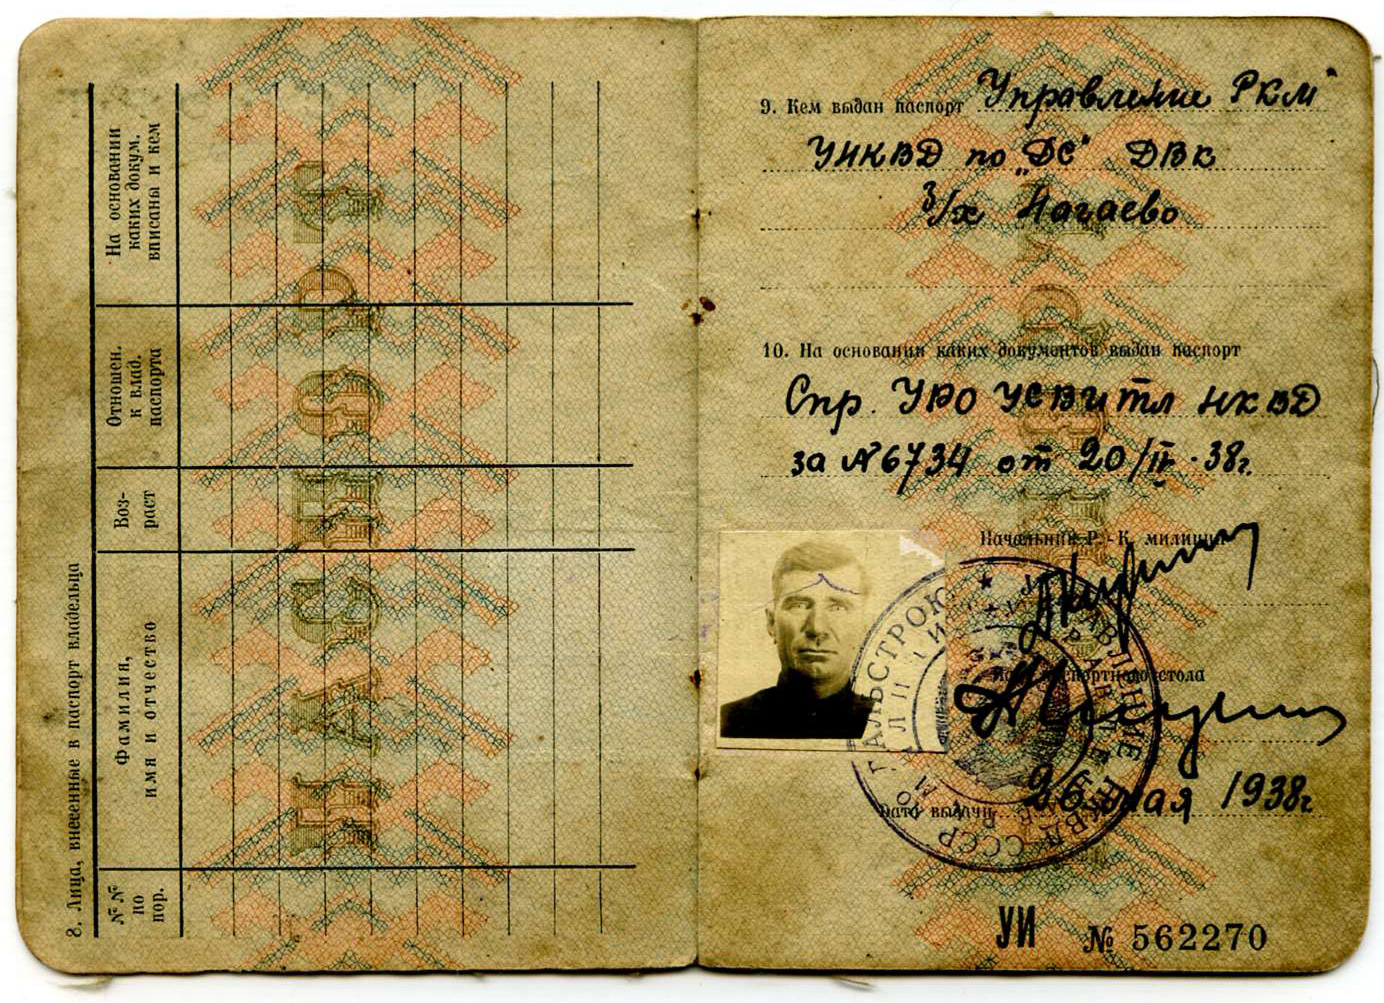 8. Лица, внесенные в паспорт владельца
№№ по пор.
Фамилия, имя и отчество
Воз-раст
Отношен. к влад. паспорта
На основании каких докум. вписаны и кем
ПАСПОРТ
9. Кем выдан паспорт Управление РКМ
УНКВД по „ДС“ ДВК
Нагаево
10. На основании каких документов выдан паспорт
Спр. УРО УСВИТЛ НКВД
за №6734 от 20/IV-38г.
Начальник Р.-К. милиции
Нач. паспортного стола
Дата выдачи 26 мая 1938г
УПРАВЛЕНИЕ НКВД СССР ПО ДАЛЬСТРОЮ
УИ № 562270